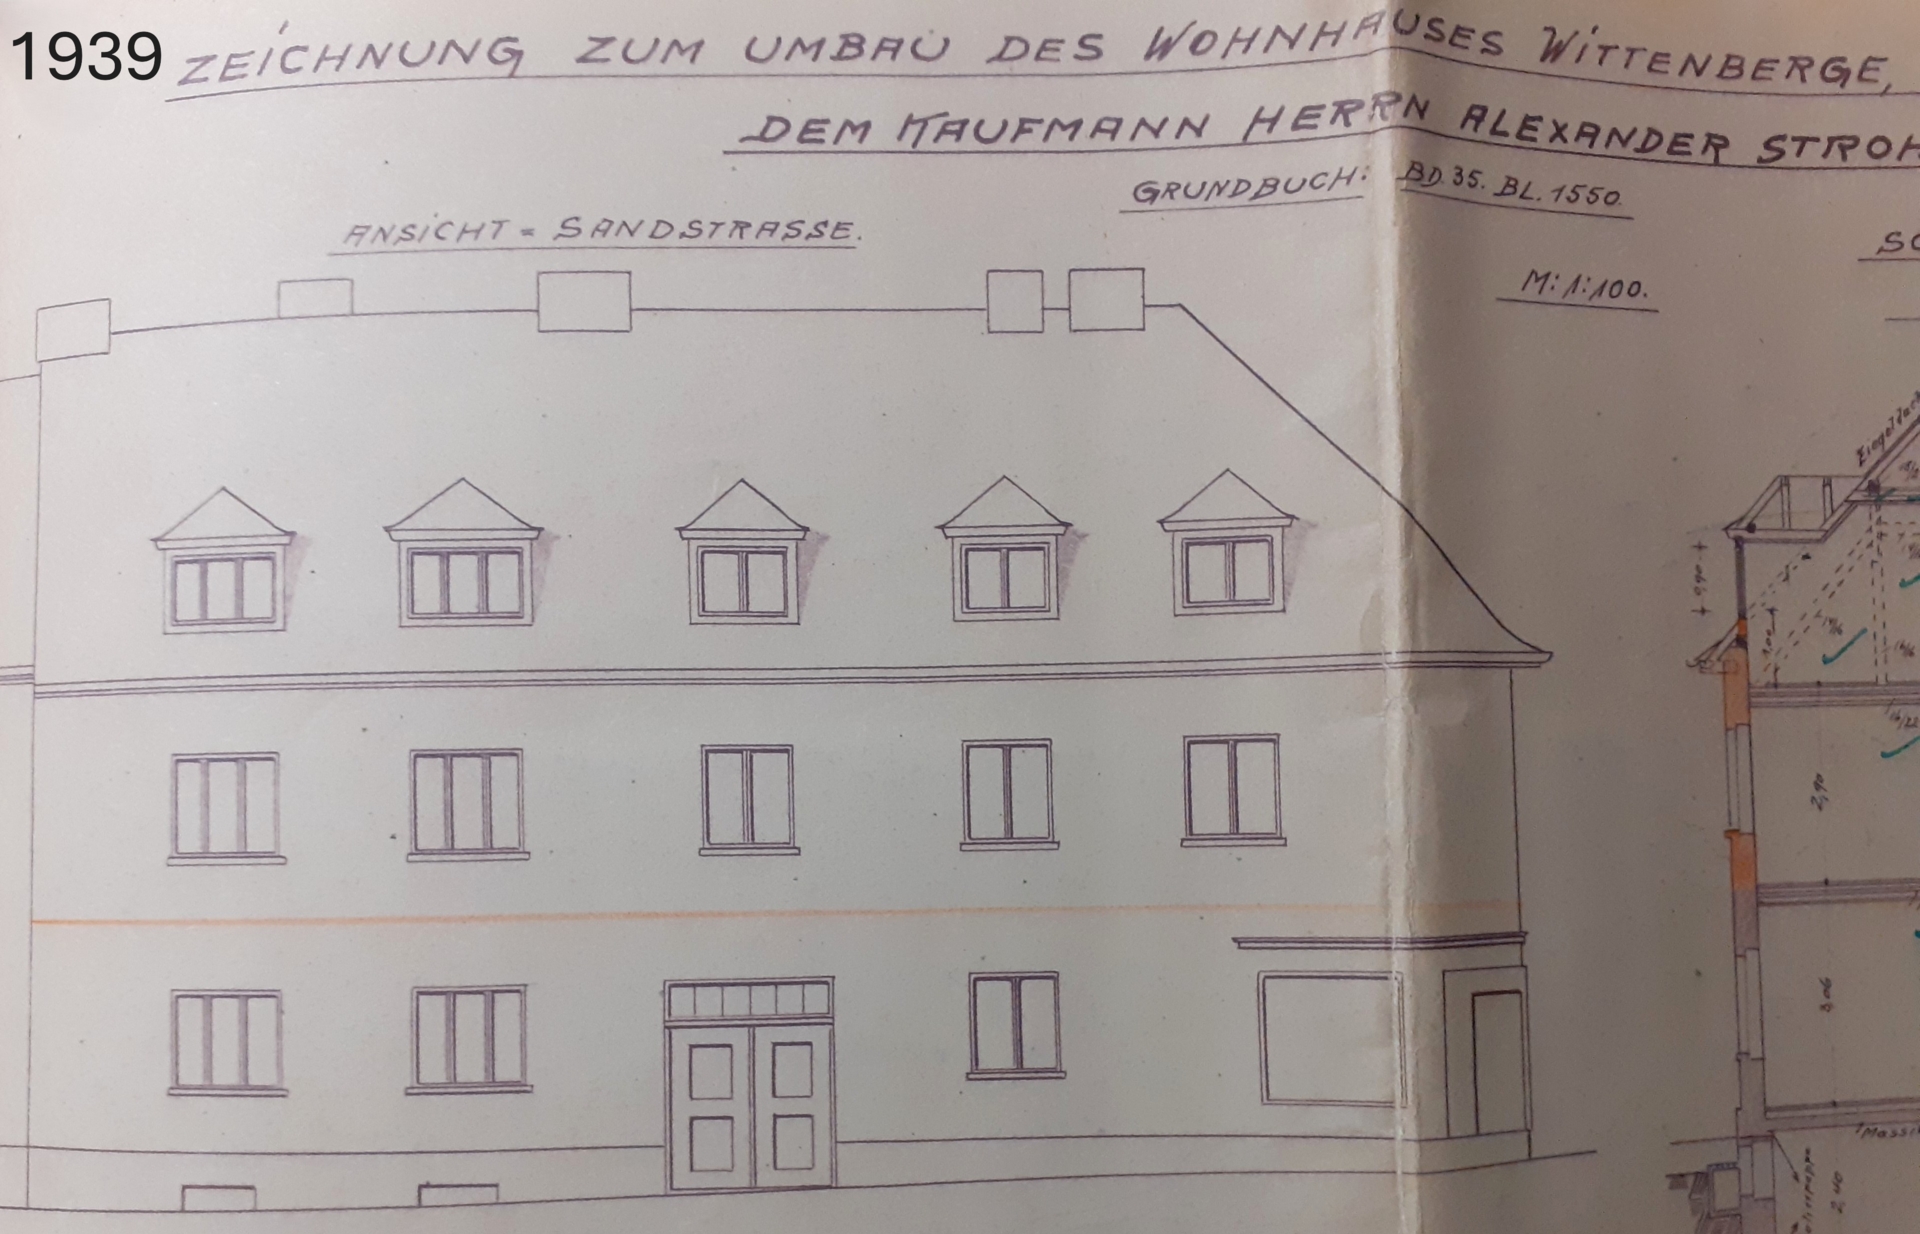 1939
ZEICHNUNG ZUM UMBAU DES WOHNHAUSES WITTENBERGE,
DEM KAUFMANN HERRN ALEXANDER STROH
GRUNDBUCH: BD. 35. BL. 1550.
ANSICHT = SANDSTRASSE.
SC
M: 1:100.
0,90
1,00
16/22
2,90
3,06
2,40